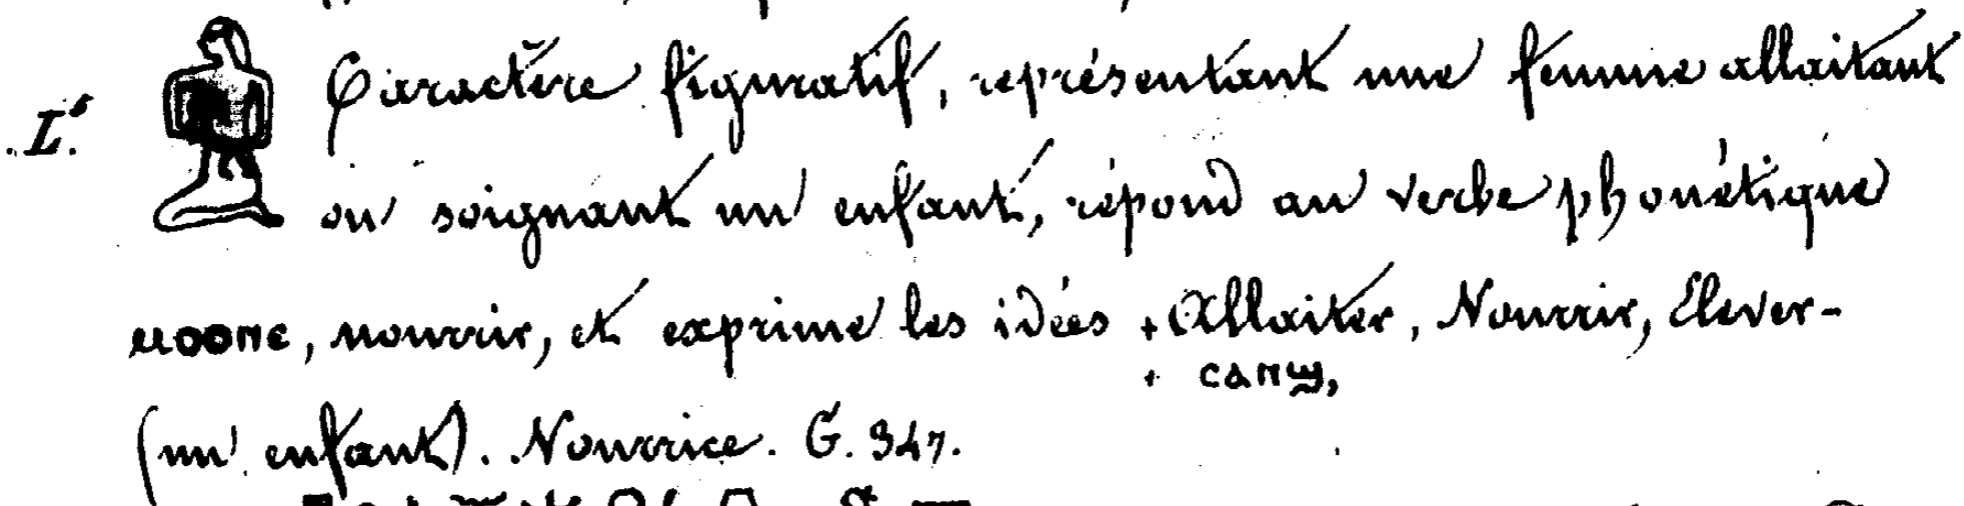 L. Caractère figuratif, représentant une femme allaitant
ou soignant un enfant, répond au verbe phonétique
ⲙⲟⲟⲛⲉ, nourrir, et exprime les idées + Allaiter, Nourrir, Élever-
+ ⲥⲁⲛϣ,
(un enfant). Nourrice. G. 347.